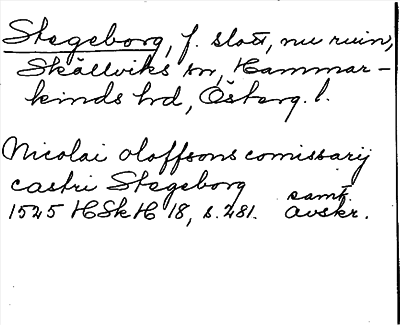 Stegeborg, f. slott, nu ruin,
Skällviks sn, Hammar-
kinds hd, Österg. l.
Nicolai oloffsons comissarij
castri Stegeborg
1525 HSkH 18, s. 281. samt. avskr.